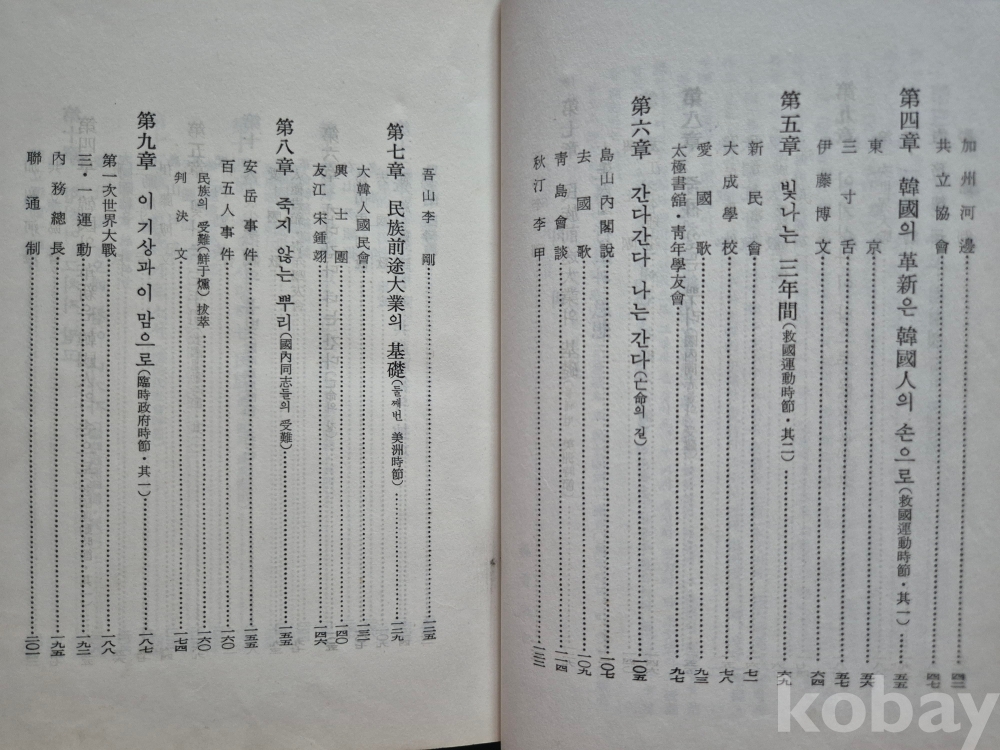 加州河邊 四二
共立協會 四七
第四章 韓國의 革新은 韓國人의 손으로(救國運動時節・其一) 五五
東京 五六
三寸舌 五七
伊藤博文 六四
第五章 빛나는 三年間(救國運動時節・其二) 六九
新民會 七一
大成學校 七八
愛國歌 九三
太極書舘・靑年學友會 九七
第六章 간다간다 나는 간다(亡命의 길) 一〇五
島山內閣說 一〇七
去國歌 一〇九
靑島會談 一一四
秋汀李甲 一二二
吾山李剛 一二五
第七章 民族前途大業의 基礎(둘째번 美洲時節) 一二九
大韓人國民會 一三一
興士團 一四〇
友江宋鍾翊 一四六
第八章 죽지 않는 뿌리(國內同志들의 受難) 一五五
安岳事件 一五五
百五人事件 一六〇
民族의 受難(鮮于燻) 拔萃 一六〇
判決文 一七四
第九章 이 기상과 이 맘으로(臨時政府時節・其一) 一八七
第一次世界大戰 一八八
三・一運動 一九二
內務總長 一九五
聯通制 二〇一
kobay